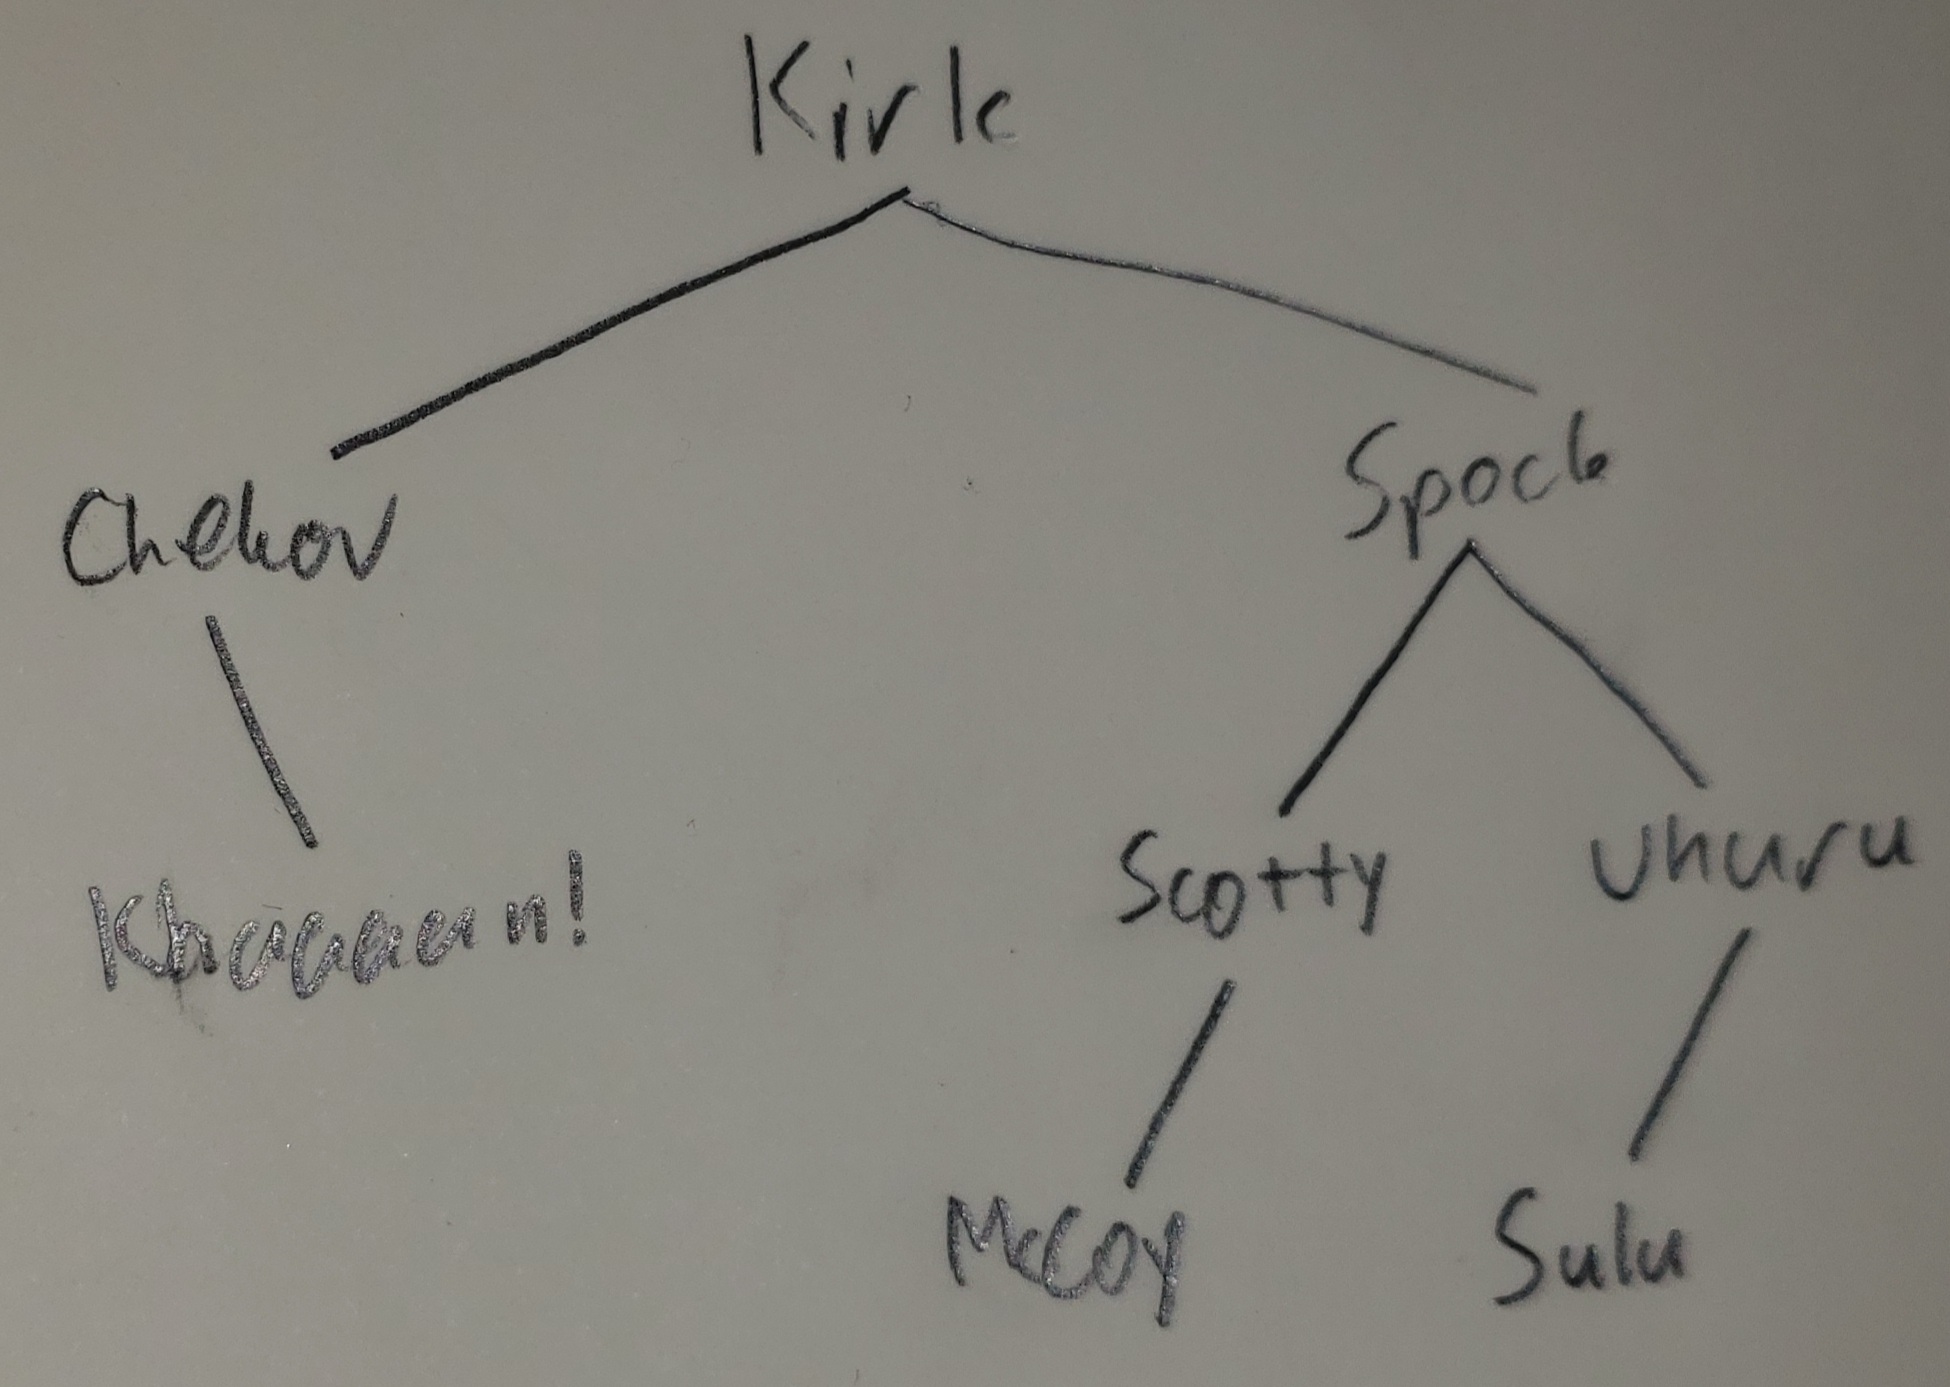 Kirk
Chekov
Spock
Khaaaaan!
Scotty
Uhuru
McCoy
Sulu